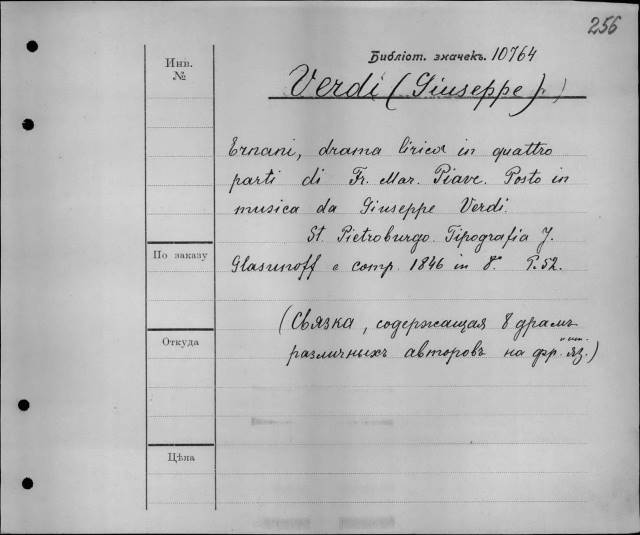 256
Инв.
№
Библіот. значекъ. 10764
Verdi (Giuseppe)
Ernani, drama lirica in quattro
parti di Fr. Mar. Piave. Posto in
musica da Giuseppe Verdi.
St. Pietroburgo. Tipografia J.
По заказу
Glasunoff e comp. 1846 in 8° P. 52.
(Связка, содержащая 8 драмъ
Откуда
различныхъ авторовъ на фр. яз.)
Цѣна